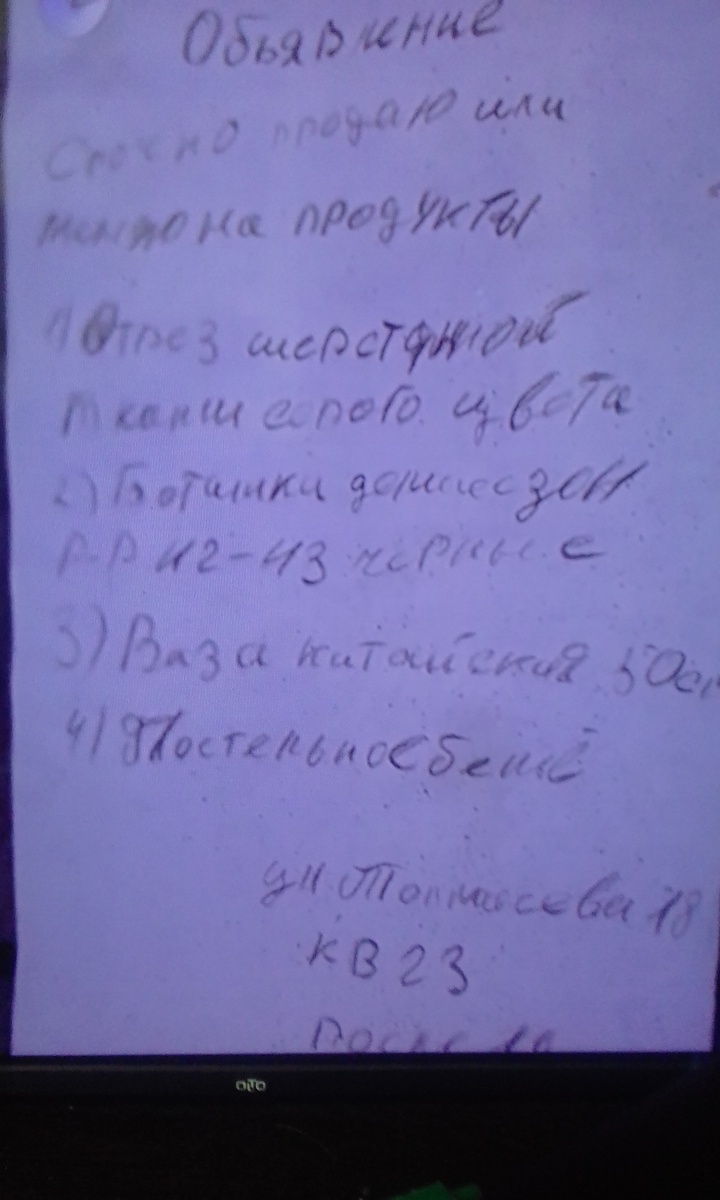 Объявление
Срочно продаю или
меняю на продукты
1) Отрез шерстяной
ткани серого цвета
2) Ботинки демисезон
р-р 42-43 черные
3) Ваза китайская 50см
4) Постельное бельё
ул 18
кв 23
После